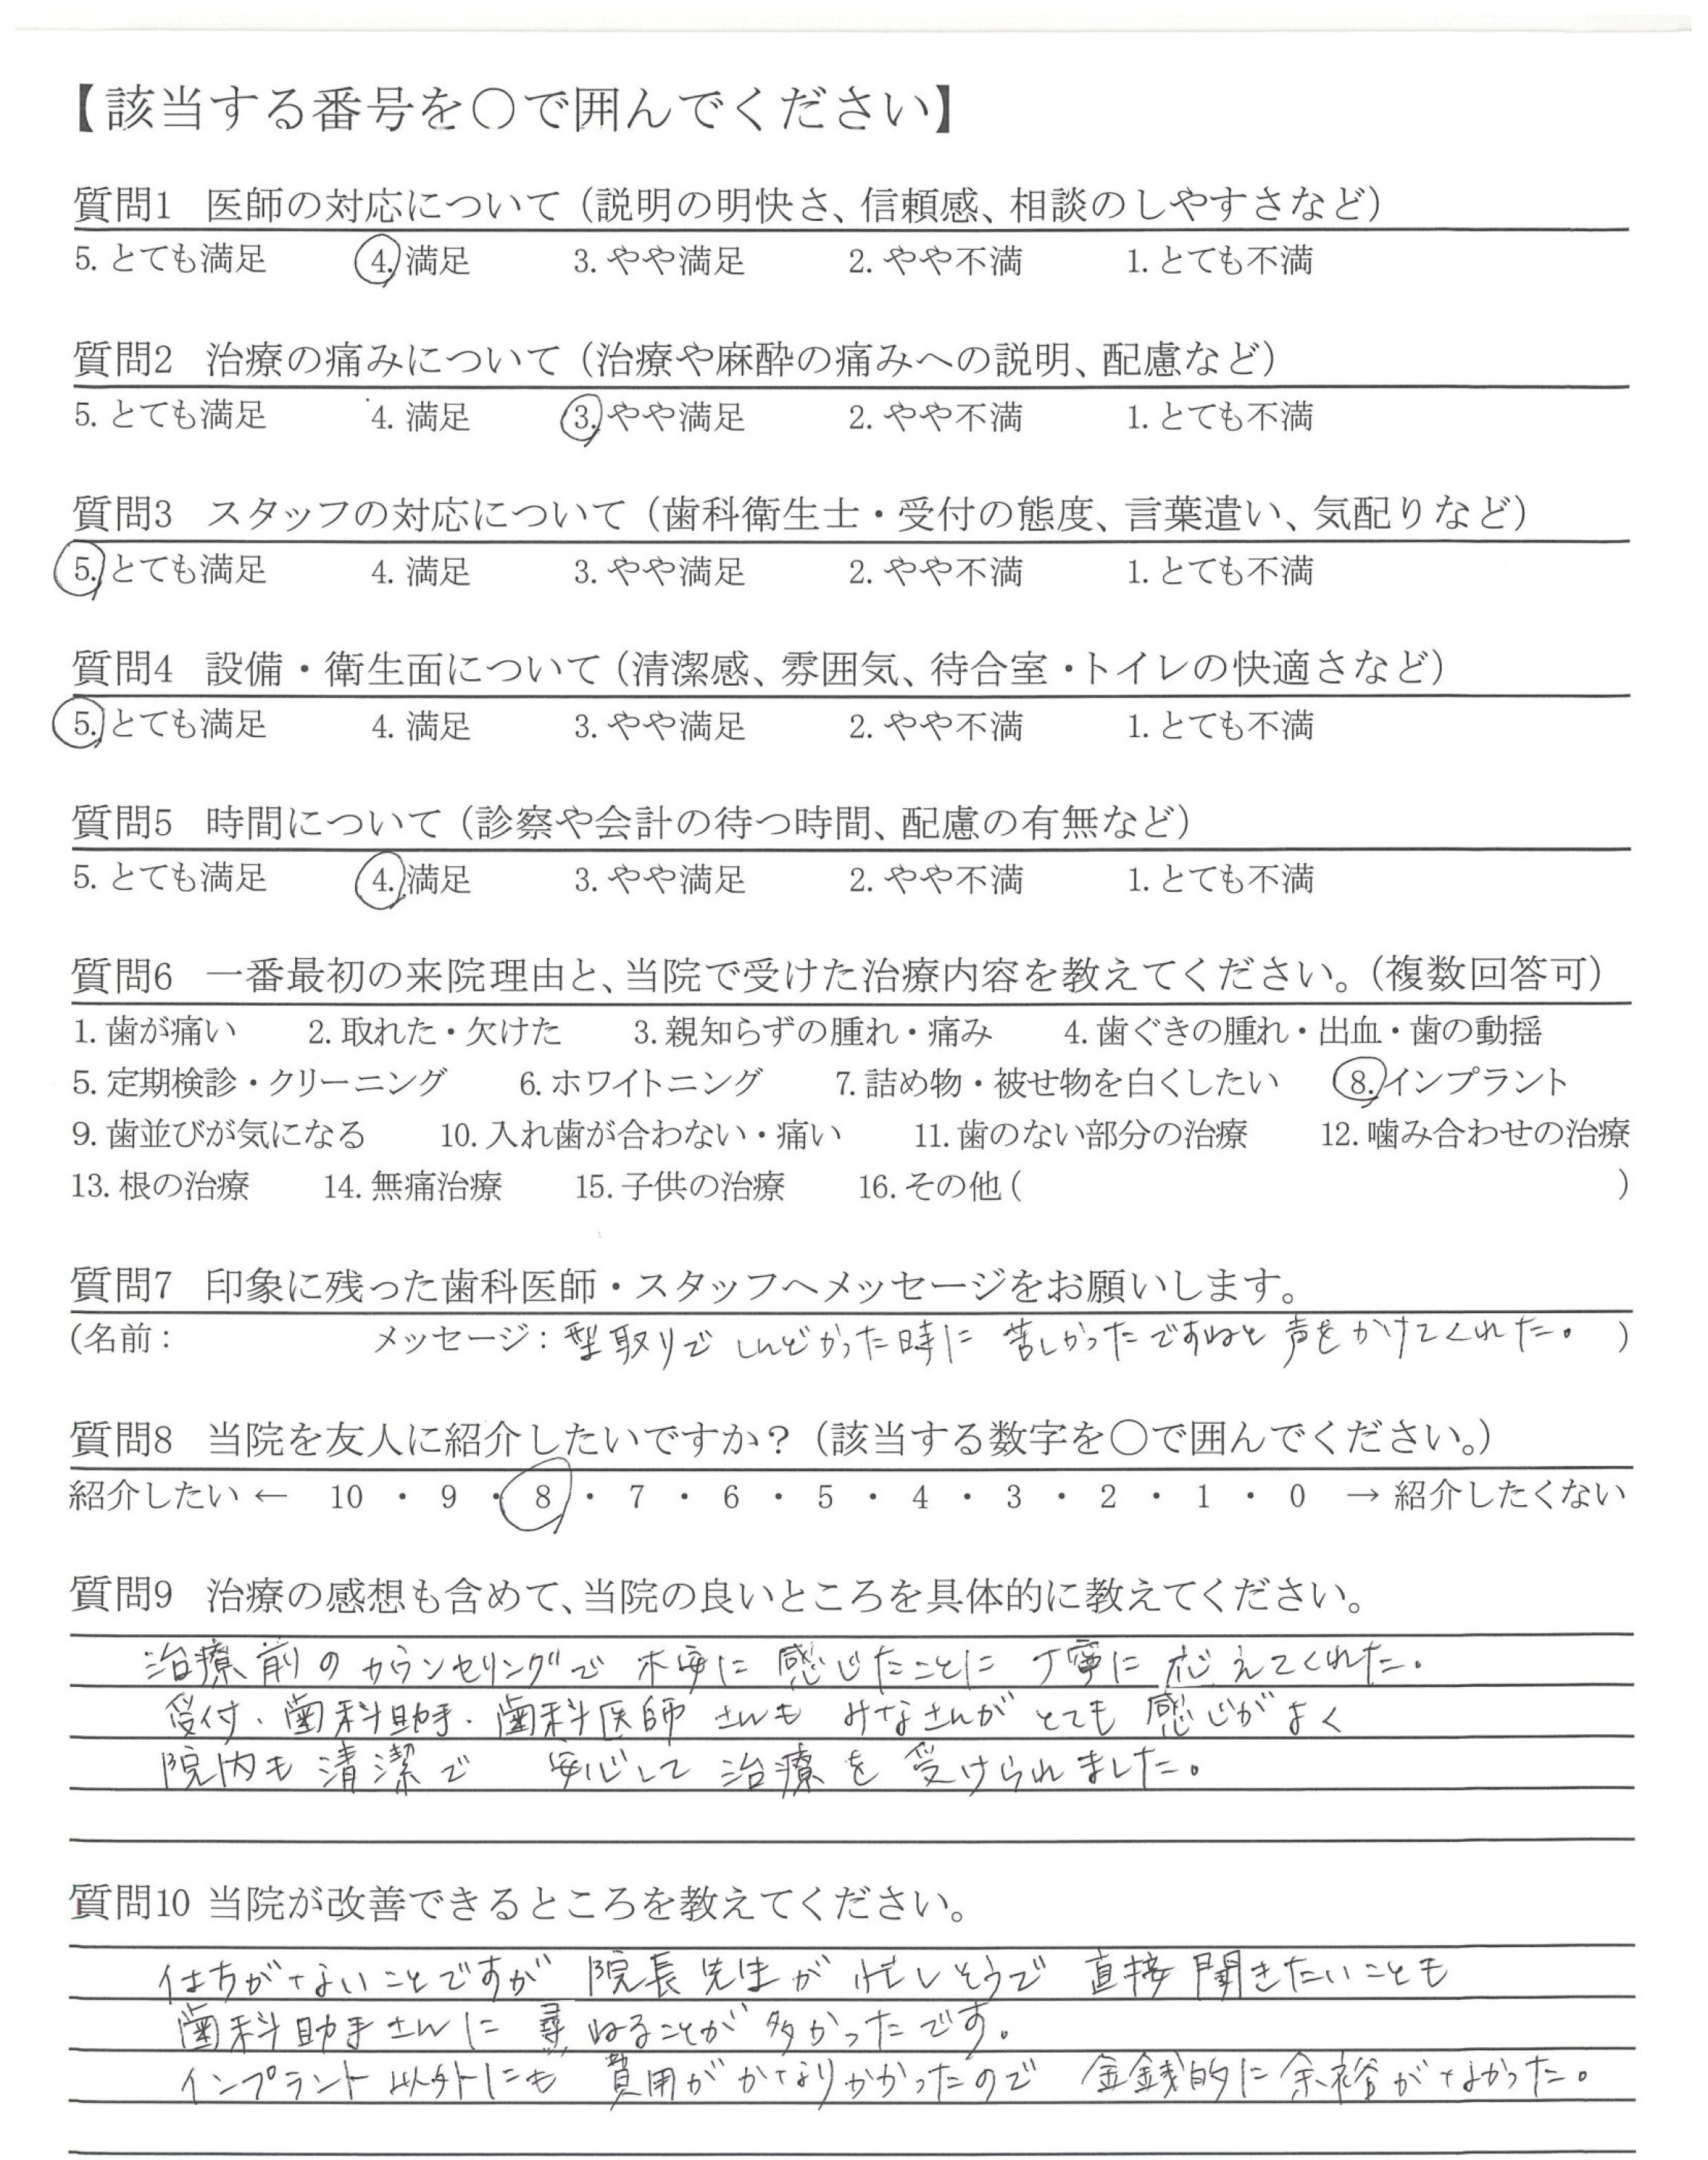 【該当する番号を〇で囲んでください】
質問1 医師の対応について（説明の明快さ、信頼感、相談のしやすさなど）
5. とても満足 4. 満足 3. やや満足 2. やや不満 1. とても不満
質問2 治療の痛みについて（治療や麻酔の痛みへの説明、配慮など）
5. とても満足 4. 満足 3. やや満足 2. やや不満 1. とても不満
質問3 スタッフの対応について（歯科衛生士・受付の態度、言葉遣い、気配りなど）
5. とても満足 4. 満足 3. やや満足 2. やや不満 1. とても不満
質問4 設備・衛生面について（清潔感、雰囲気、待合室・トイレの快適さなど）
5. とても満足 4. 満足 3. やや満足 2. やや不満 1. とても不満
質問5 時間について（診察や会計の待つ時間、配慮の有無など）
5. とても満足 4. 満足 3. やや満足 2. やや不満 1. とても不満
質問6 一番最初の来院理由と、当院で受けた治療内容を教えてください。（複数回答可）
1. 歯が痛い 2. 取れた・欠けた 3. 親知らずの腫れ・痛み 4. 歯ぐきの腫れ・出血・歯の動揺
5. 定期検診・クリーニング 6. ホワイトニング 7. 詰め物・被せ物を白くしたい 8. インプラント
9. 歯並びが気になる 10. 入れ歯が合わない・痛い 11. 歯のない部分の治療 12. 噛み合わせの治療
13. 根の治療 14. 無痛治療 15. 子供の治療 16. その他（ ）
質問7 印象に残った歯科医師・スタッフへメッセージをお願いします。
（名前： メッセージ：型取りでしんどかった時に 苦しかったですねと声をかけてくれた。）
質問8 当院を友人に紹介したいですか？（該当する数字を〇で囲んでください。）
紹介したい ← 10 ・ 9 ・ 8 ・ 7 ・ 6 ・ 5 ・ 4 ・ 3 ・ 2 ・ 1 ・ 0 → 紹介したくない
質問9 治療の感想も含めて、当院の良いところを具体的に教えてください。
治療前のカウンセリングで不安に感じたことに丁寧に応えてくれた。
受付、歯科助手、歯科医師さんもみなさんがとても感じがよく
院内も清潔で 安心して治療を受けられました。
質問10 当院が改善できるところを教えてください。
仕方がないことですが院長先生が忙しそうで直接聞きたいことも
歯科助手さんに尋ねることが多かったです。
インプラント以外にも費用がかなりかかったので 金銭的に余裕がなかった。